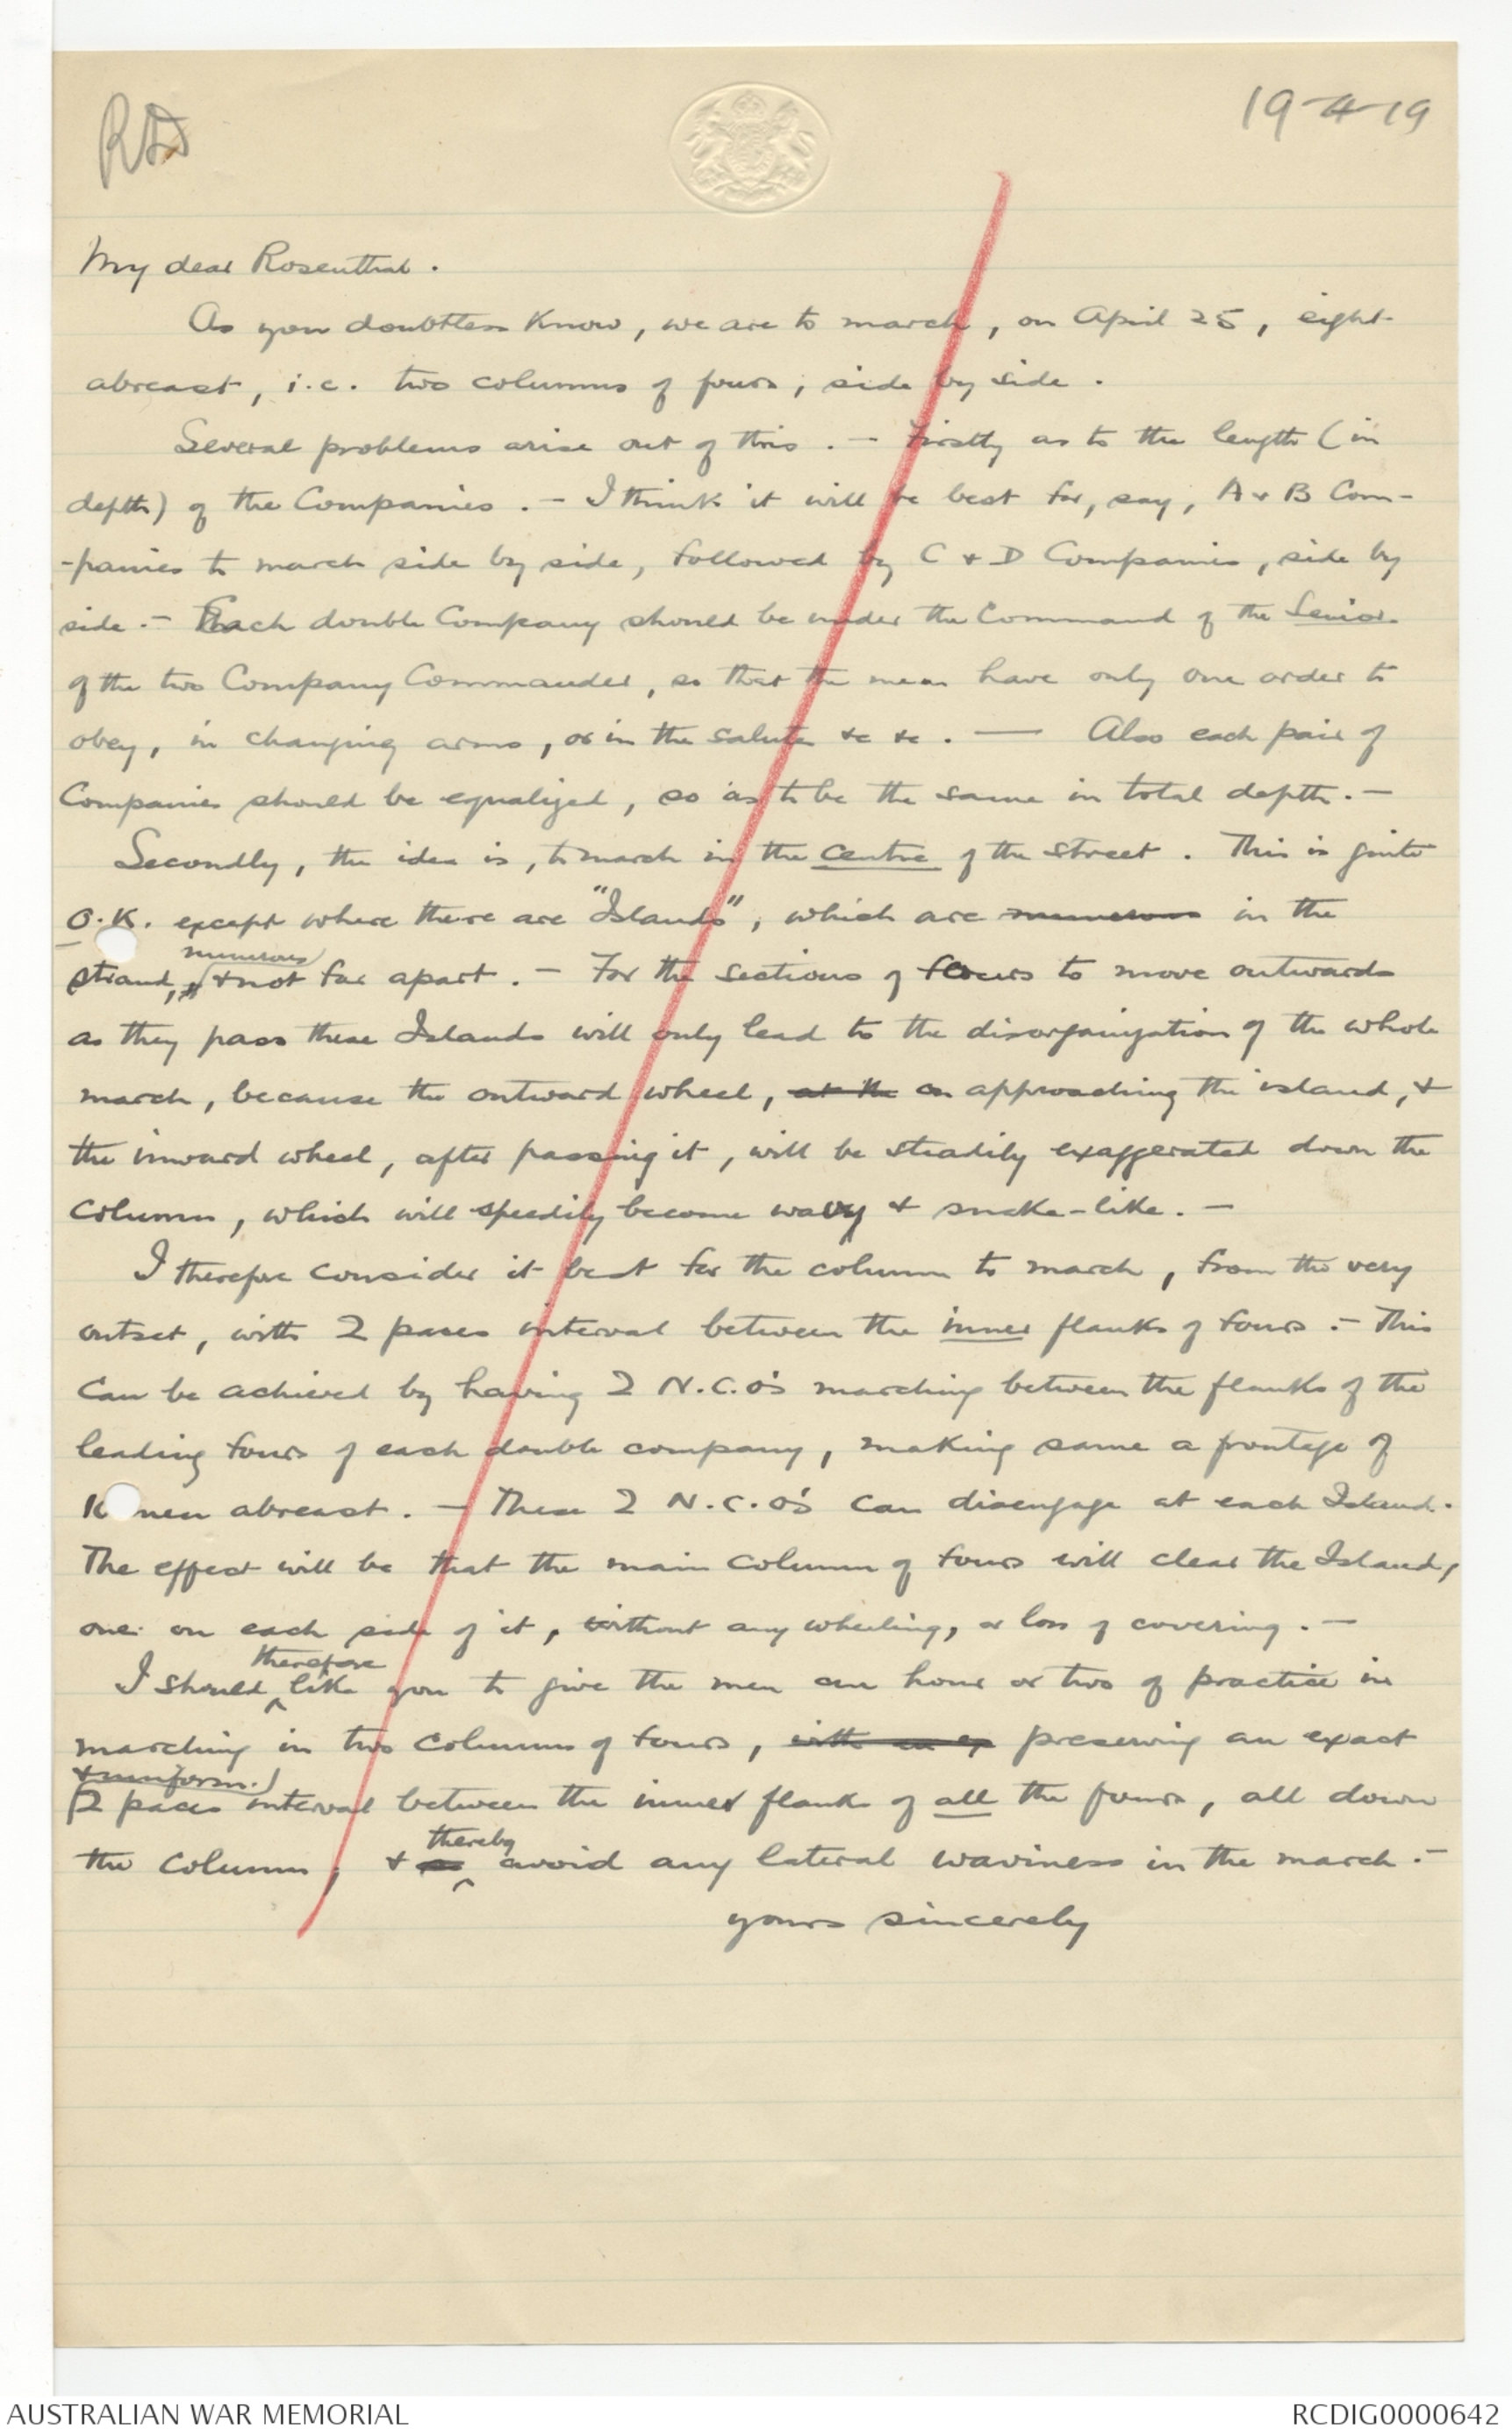 19-4-19
My dear Rosenthal.
As you doubtless know, we are to march, on April 25, eight
abreast, i.e. two columns of fours, side by side.
Several problems arise out of this. - Firstly as to the length (in
depth) of the Companies. - I think it will be best for, say, A & B Com-
-panies to march side by side, followed by C & D Companies, side by
side. - Each double Company should be under the Command of the Senior
of the two Company Commander, so that the men have only one order to
obey, in changing arms, or in the salute &c &c. — Also each pair of
Companies should be equalized, so as to be the same in total depth. -
Secondly, the idea is, to march in the centre of the street. This is quite
O.K. except where there are "Islands", which are numerous in the
numerous
Strand, & not far apart. - For the sections of fours to move outwards
as they pass these Islands will only lead to the disorganization of the whole
march, because the outward wheel, at the on approaching the island, &
the inward wheel, after passing it, will be steadily exaggerated down the
column, which will speedily become wavy & snake-like. -
I therefore consider it best for the column to march, from the very
outset, with 2 paces interval between the inner flanks of fours. - This
can be achieved by having 2 N.C.O's marching between the flanks of the
leading fours of each double company, making same a frontage of
10 men abreast. - These 2 N.C.O's can disengage at each Island.
The effect will be that the main column of fours will clear the Island,
one on each side of it, without any wheeling, or loss of covering. -
therefore
I should like you to give the men an hour or two of practice in
marching in two columns of fours, with an ex preserving an exact
& uniform
2 paces interval between the inner flank of all the fours, all down
thereby
the column, & so avoid any lateral waviness in the march. -
yours sincerely
AUSTRALIAN WAR MEMORIAL
RCDIG0000642